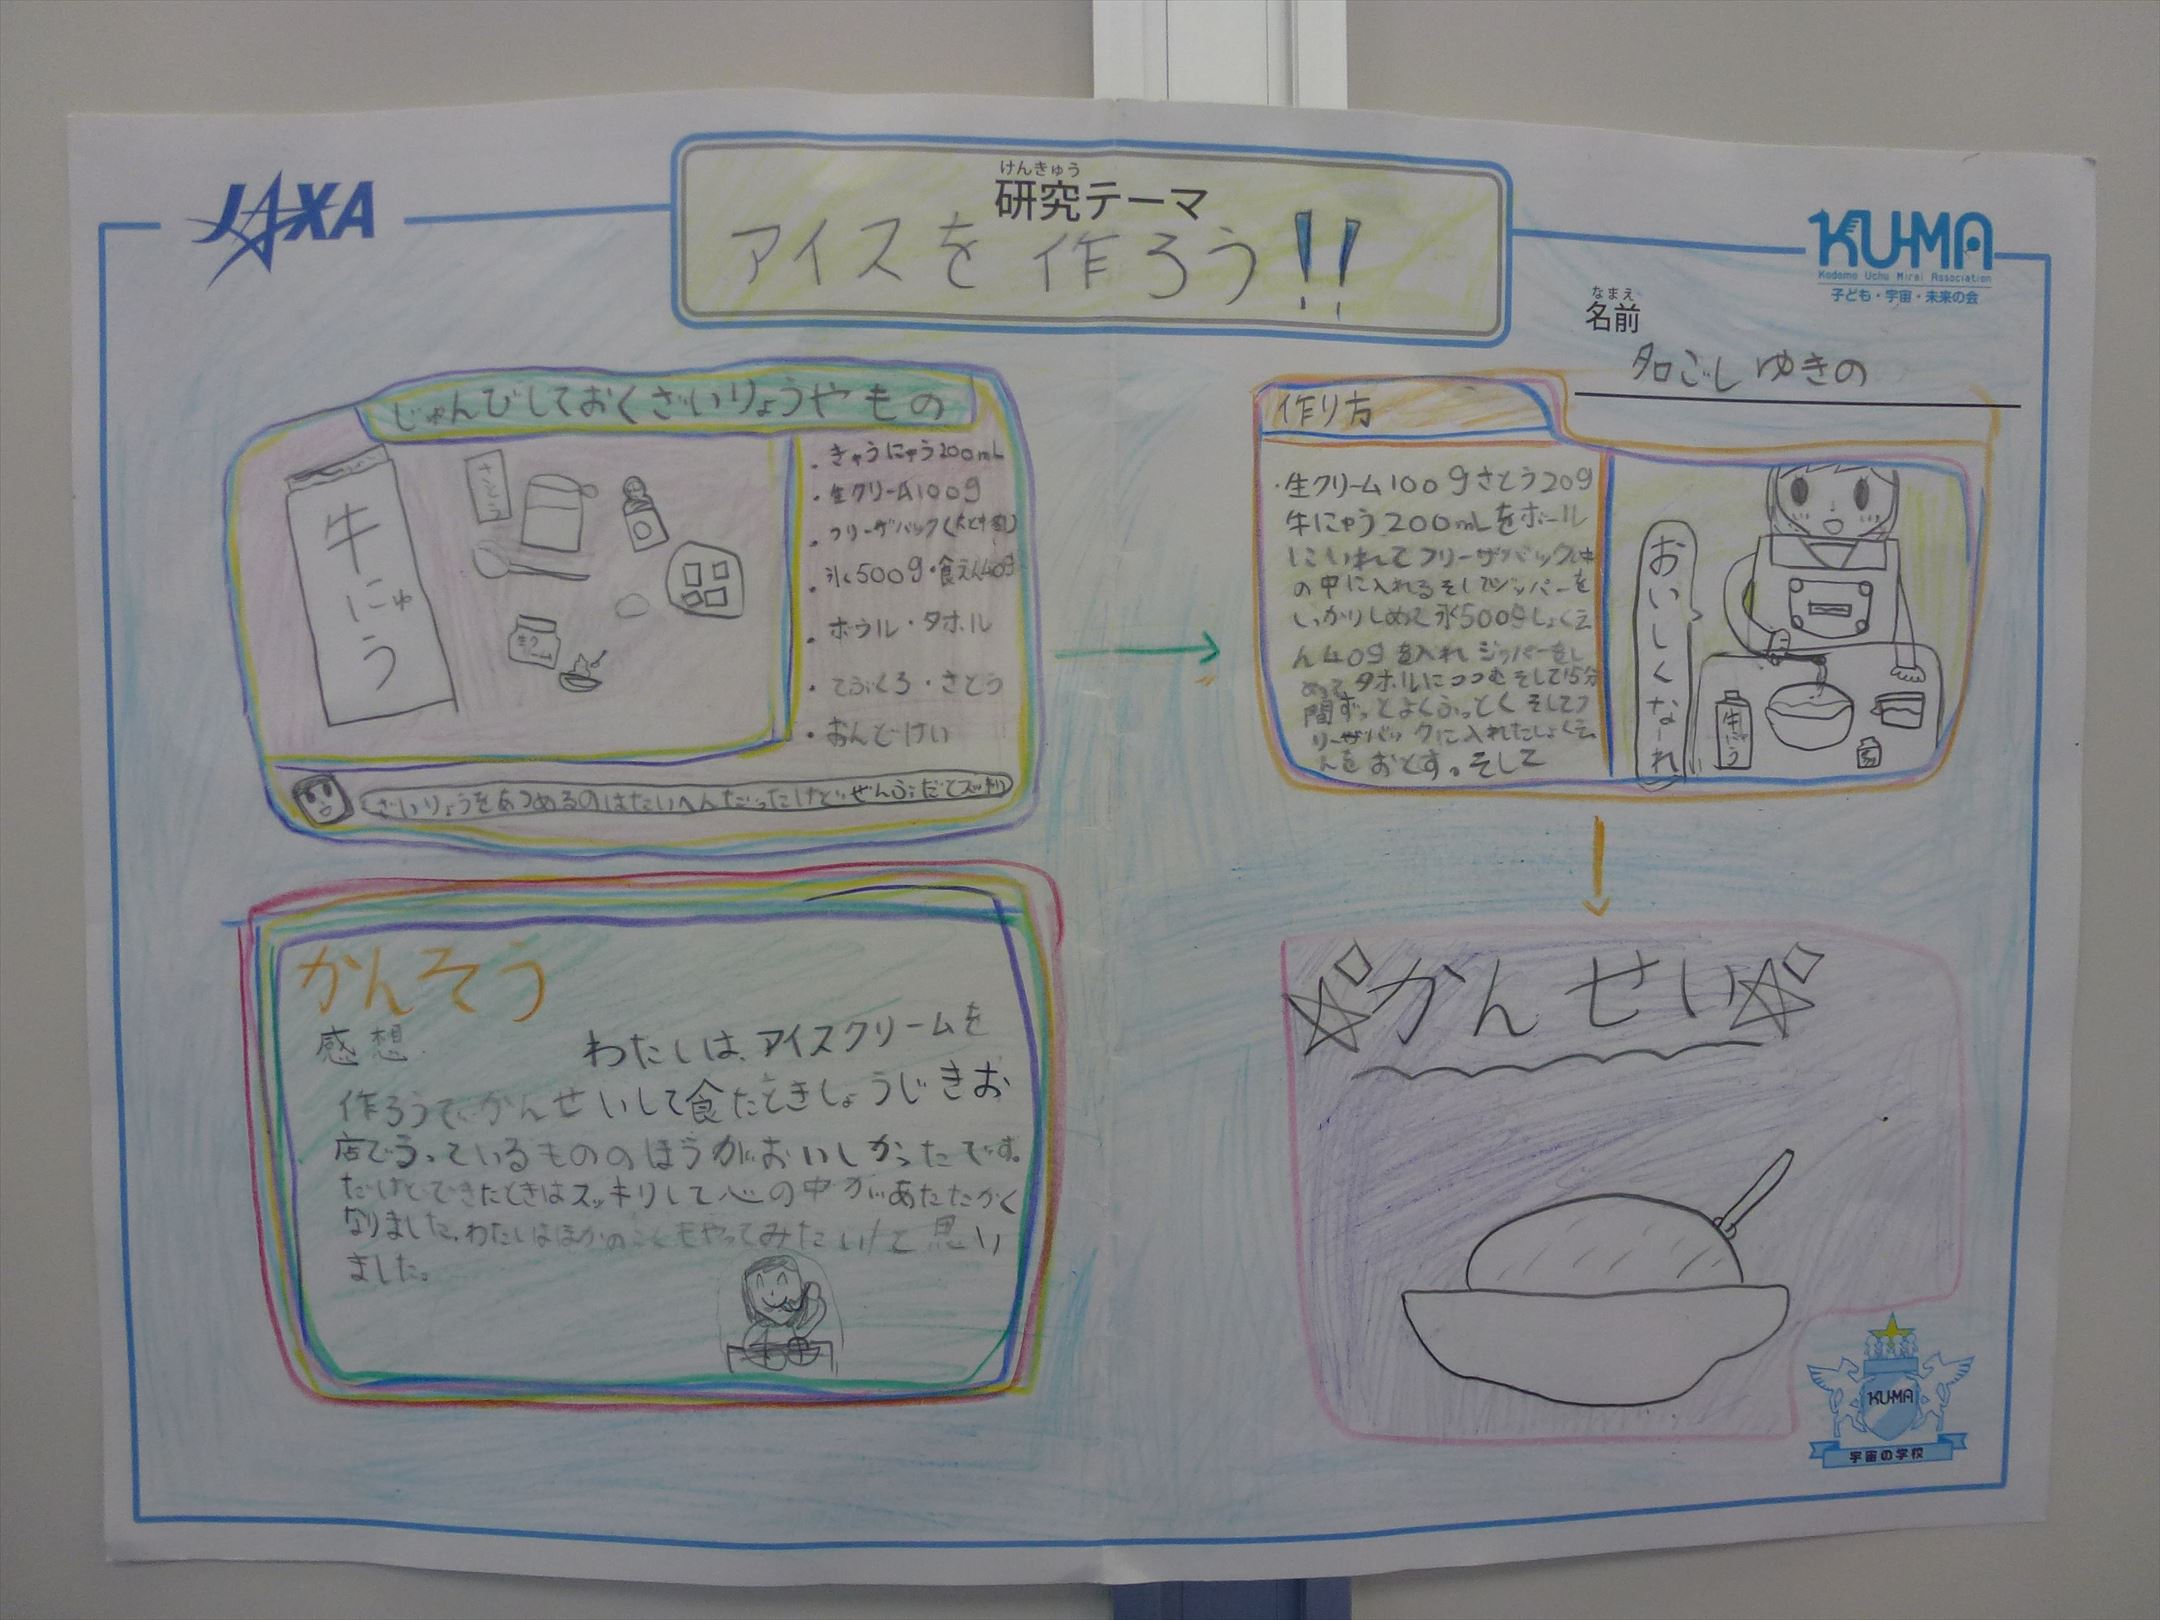 JAXA
けんきゅう
研究テーマ
アイスを作ろう!!
KU-MA
Kodomo Uchu Mirai Association
子ども・宇宙・未来の会
なまえ
名前
ごしゆきの
じゅんびしておくざいりょうやもの
牛にゅう
さとう
・きゅうにゅう200mL
・生クリーム100g
・フリーザバック(大と中
・氷500g・食えん40g
・ボウル・タオル
・てぶくろ・さとう
・おんどけい
ざいりょうをあつめるのはたいへんだったけどぜんぶだてスッキリ
作り方
・生クリーム100gさとう20g
牛にゅう200mLをボール
にいれてフリーザバック中
の中に入れるそしてジッパーを
しっかりしめて氷500gしょくえ
ん40gを入れジッパーをし
めてタオルにつつむそして15分
間ずっとよくふっとくそしてフ
リーザバックに入れたしょくえ
んをおとす。そして
おいしくなーれ
牛にゅう
かんそう
感想
わたしは、アイスクリームを
作ろうで、かんせいして食たときしょうじきお
店でうっているもののほうがおいしかったです。
だけどできたときはスッキリして心の中があたたかく
なりました。わたしはほかのこともやってみたいと思い
ました。
かんせい
KU-MA
宇宙の学校